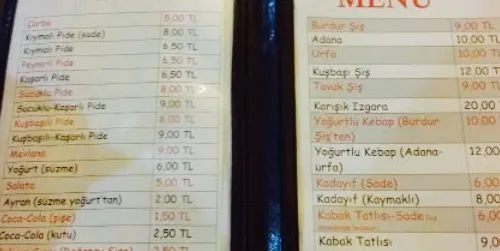 Çorba 5,00 TL
Kıymalı Pide (sade) 8,00 TL
Kıymalı Pide 6,50 TL
Peynirli Pide 6,50 TL
Kaşarlı Pide 6,50 TL
Sucuklu Pide 8,00 TL
Sucuklu-Kaşarlı Pide 9,00 TL
Kuşbaşılı Pide 8,00 TL
Kuşbaşılı-Kaşarlı Pide 9,00 TL
Mevlana 9,00 TL
Yoğurt (süzme) 6,00 TL
Salata 5,00 TL
Ayran (süzme yoğurt'tan) 2,00 TL
Coca-Cola (şişe) 1,50 TL
Coca-Cola (kutu) 2,50 TL
MENU
Burdur Şiş 9,00 TL
Adana 10,00 TL
Urfa 10,00 TL
Kuşbaşı Şiş 12,00 TL
Tavuk Şiş 9,00 TL
Karışık Izgara 20,00
Yoğurtlu Kebap (Burdur 10,00
Şiş'ten)
Yoğurtlu Kebap (Adana- 12,00
urfa)
Kadayıf (Sade) 6,00
Kadayıf (Kaymaklı) 8,00
Kabak Tatlısı-Sade 6,00
Kabak Tatlısı 9,00